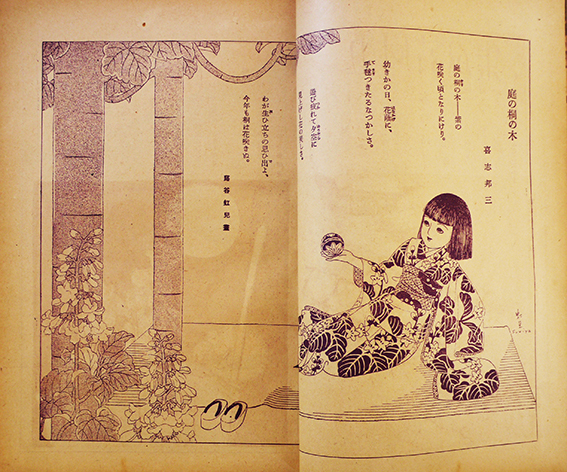 庭の桐の木
喜志邦三
庭の桐の木――
花咲く頃となりにけり。
幼きかの日、花蔭に、
手毬つきたるなつかしさ。
遊び疲れて夕空に
上げし花の美しさ。
わが生ひ立ちの思ひ出よ、
今年も桐は花咲きぬ。
蕗谷虹兒畫